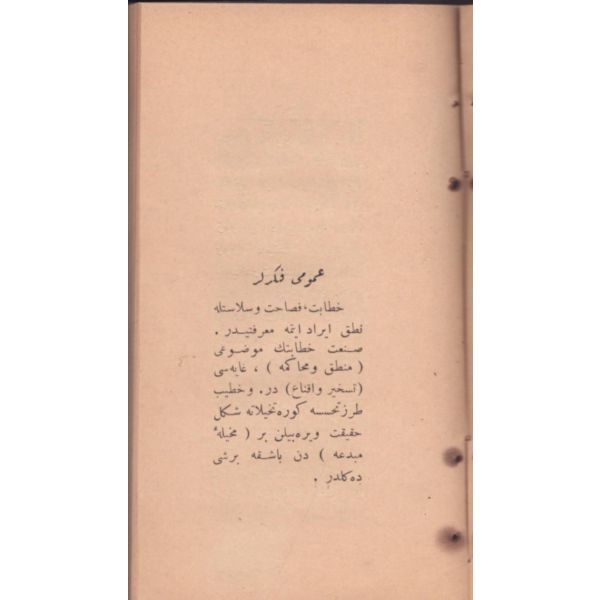 عمومی فكرلر
خطابت، فصاحت و سلاستله
نطق ایراد ایتمه معرفتیدر .
صنعت خطابتك موضوعی
( منطق و محاكمه ) ، غایه‌سی
(تسخیر و اقناع) در. و خطیب
طرز تحسسه كوره تخیلاته شكل
حقیقت ویره‌بیلن بر ( مخیلهٔ
مبدعه ) دن باشقه برشی
ده‌كلدر .